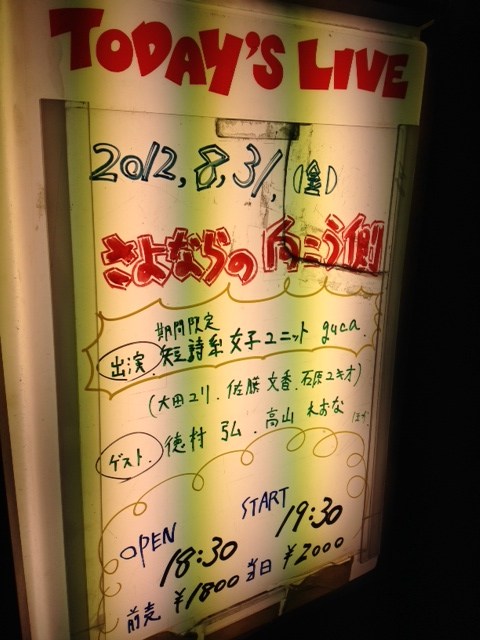 TODAY'S LIVE
2012,8,31,(金)
さよならの向こう側
期間限定
出演. 短詩型女子ユニット guca.
(太田ユリ. 佐藤文香. 石原ユキオ)
ゲスト. 徳村 弘. 高山 れおな ほか
OPEN START
18:30 19:30
前売 ¥1800 当日 ¥2000